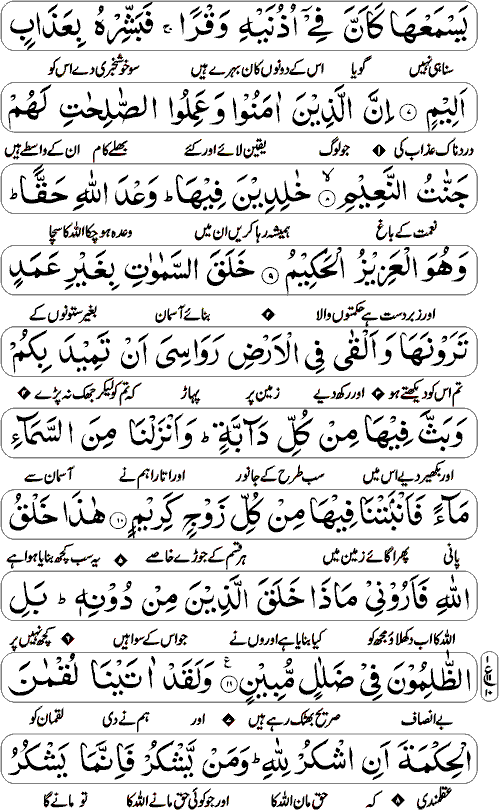 يَسْمَعْهَا كَاَنَّ فِيْۤ اُذُنَيْهِ وَقْرًا ۚ فَبَشِّرْهُ بِعَذَابٍ
سنا ہی نہیں گویا اس کے دونوں کان بہرے ہیں سو خوشخبری دے اس کو
اَلِيْمٍ ۷ اِنَّ الَّذِيْنَ اٰمَنُوْا وَعَمِلُوا الصّٰلِحٰتِ لَهُمْ
دردناک عذاب کی ۱ جو لوگ یقین لائے اور کئے بھلے کام ان کے واسطے ہیں
جَنّٰتُ النَّعِيْمِ ۸ۙ خٰلِدِيْنَ فِيْهَا ؕ وَعْدَ اللّٰهِ حَقًّا ؕ
نعمت کے باغ ہمیشہ رہا کریں ان میں وعدہ ہو چکا اللہ کا سچا
وَهُوَ الْعَزِيْزُ الْحَكِيْمُ ۹ خَلَقَ السَّمٰوٰتِ بِغَيْرِ عَمَدٍ
اور زبردست ہے حکمتوں والا ۲ بنائے آسمان بغیر ستونوں کے
تَرَوْنَهَا وَاَلْقٰى فِي الْاَرْضِ رَوَاسِيَ اَنْ تَمِيْدَ بِكُمْ
تم اس کو دیکھتے ہو ۳ اور رکھ دیے زمین پر پہاڑ کہ تم کو لیکر جھک نہ پڑے ۴
وَبَثَّ فِيْهَا مِنْ كُلِّ دَآبَّةٍ ؕ وَاَنْزَلْنَا مِنَ السَّمَآءِ
اور بکھیر دیے اس میں سب طرح کے جانور اور اتارا ہم نے آسمان سے
مَآءً فَاَنْۢبَتْنَا فِيْهَا مِنْ كُلِّ زَوْجٍ كَرِيْمٍ ۱۰ هٰذَا خَلْقُ
پانی پھر اگائے زمین میں ہر قسم کے جوڑے خاصے ۵ یہ سب کچھ بنایا ہوا ہے
اللّٰهِ فَاَرُوْنِيْ مَاذَا خَلَقَ الَّذِيْنَ مِنْ دُوْنِهٖ ؕ بَلِ
اللہ کا اب دکھلاؤ مجھ کو کیا بنایا ہے اوروں نے جو اس کے سوا ہیں ۶ کچھ نہیں پر
الظّٰلِمُوْنَ فِيْ ضَلٰلٍ مُّبِيْنٍ ۱۱ ع وَلَقَدْ اٰتَيْنَا لُقْمٰنَ
بے انصاف صریح بھٹک رہے ہیں ۷ اور ہم نے دی لقمان کو
الْحِكْمَةَ اَنِ اشْكُرْ لِلّٰهِ ؕ وَمَنْ يَّشْكُرْ فَاِنَّمَا يَشْكُرُ
عقلمندی ۸ کہ حق مان اللہ کا اور جو کوئی حق مانے اللہ کا تو مانے گا